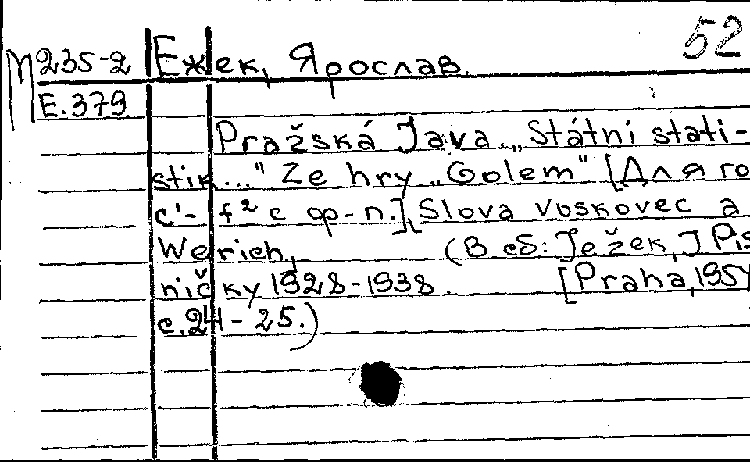 52
М 235-2 Ежек, Ярослав.
Е.379
Pražská Java „Státní stati-
stik..." Ze hry „Golem" [Для го
c'- f² с ф-п.], Slova Voskovec a
Werich, (В сб: Ježek, J Pis
ničky 1928-1938. [Praha, 195
с.24-25.)